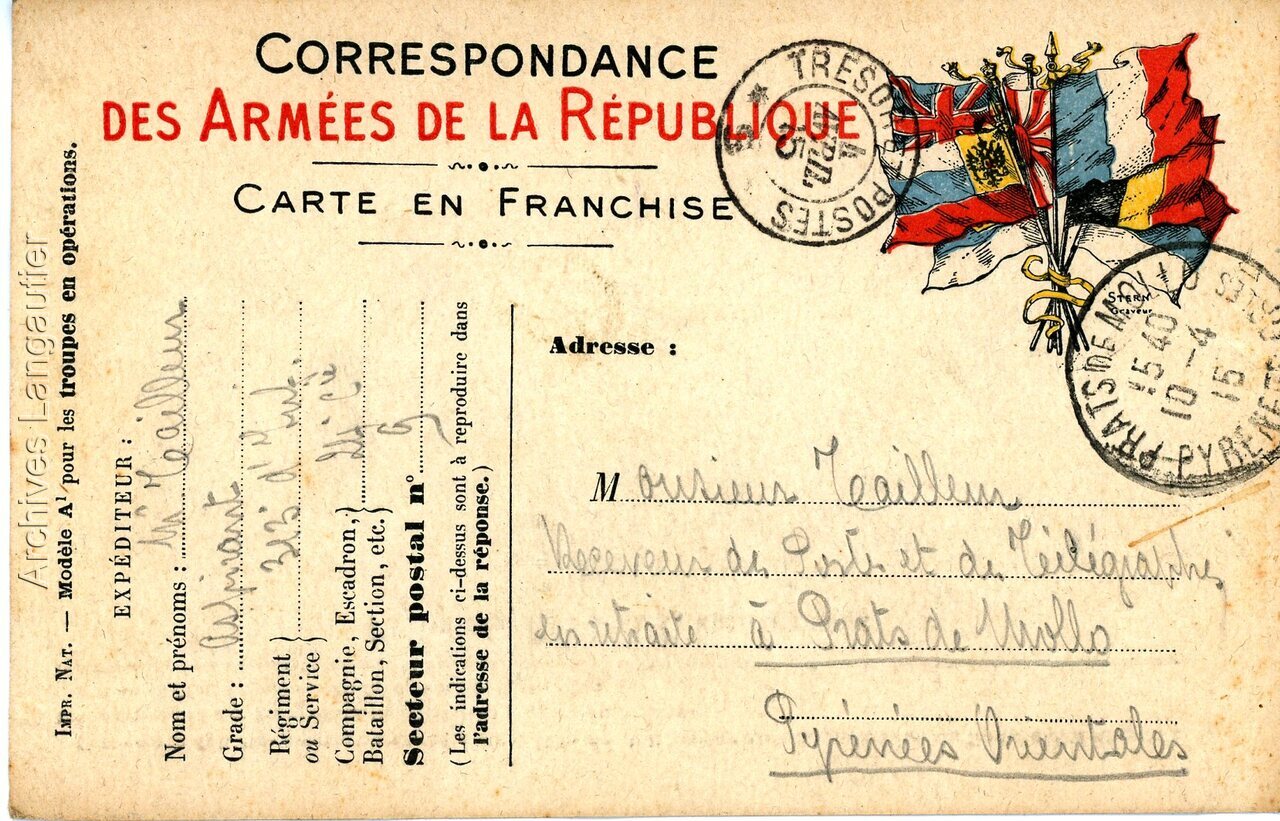 CORRESPONDANCE
DES ARMÉES DE LA RÉPUBLIQUE
CARTE EN FRANCHISE
TRESOR ET POSTES
4
AVRIL
15
* 5
STERN
Graveur
PRATS DE MOLLO
15 40
10 - 4
15
PYRENEES
Archives Langautier
IMPR. NAT. — Modèle A¹ pour les troupes en opérations.
EXPÉDITEUR :
Nom et prénoms : Tailleur
Grade : aspirant
Régiment
ou Service } d'Inf.
Compagnie, Escadron,
Bataillon, Section, etc. } Cie
Secteur postal n° 9
(Les indications ci-dessus sont à reproduire dans
l'adresse de la réponse.)
Adresse :
Monsieur Tailleur
Receveur des Postes et des Télégraphes
en retraite à Prats de Mollo
Pyrénées Orientales